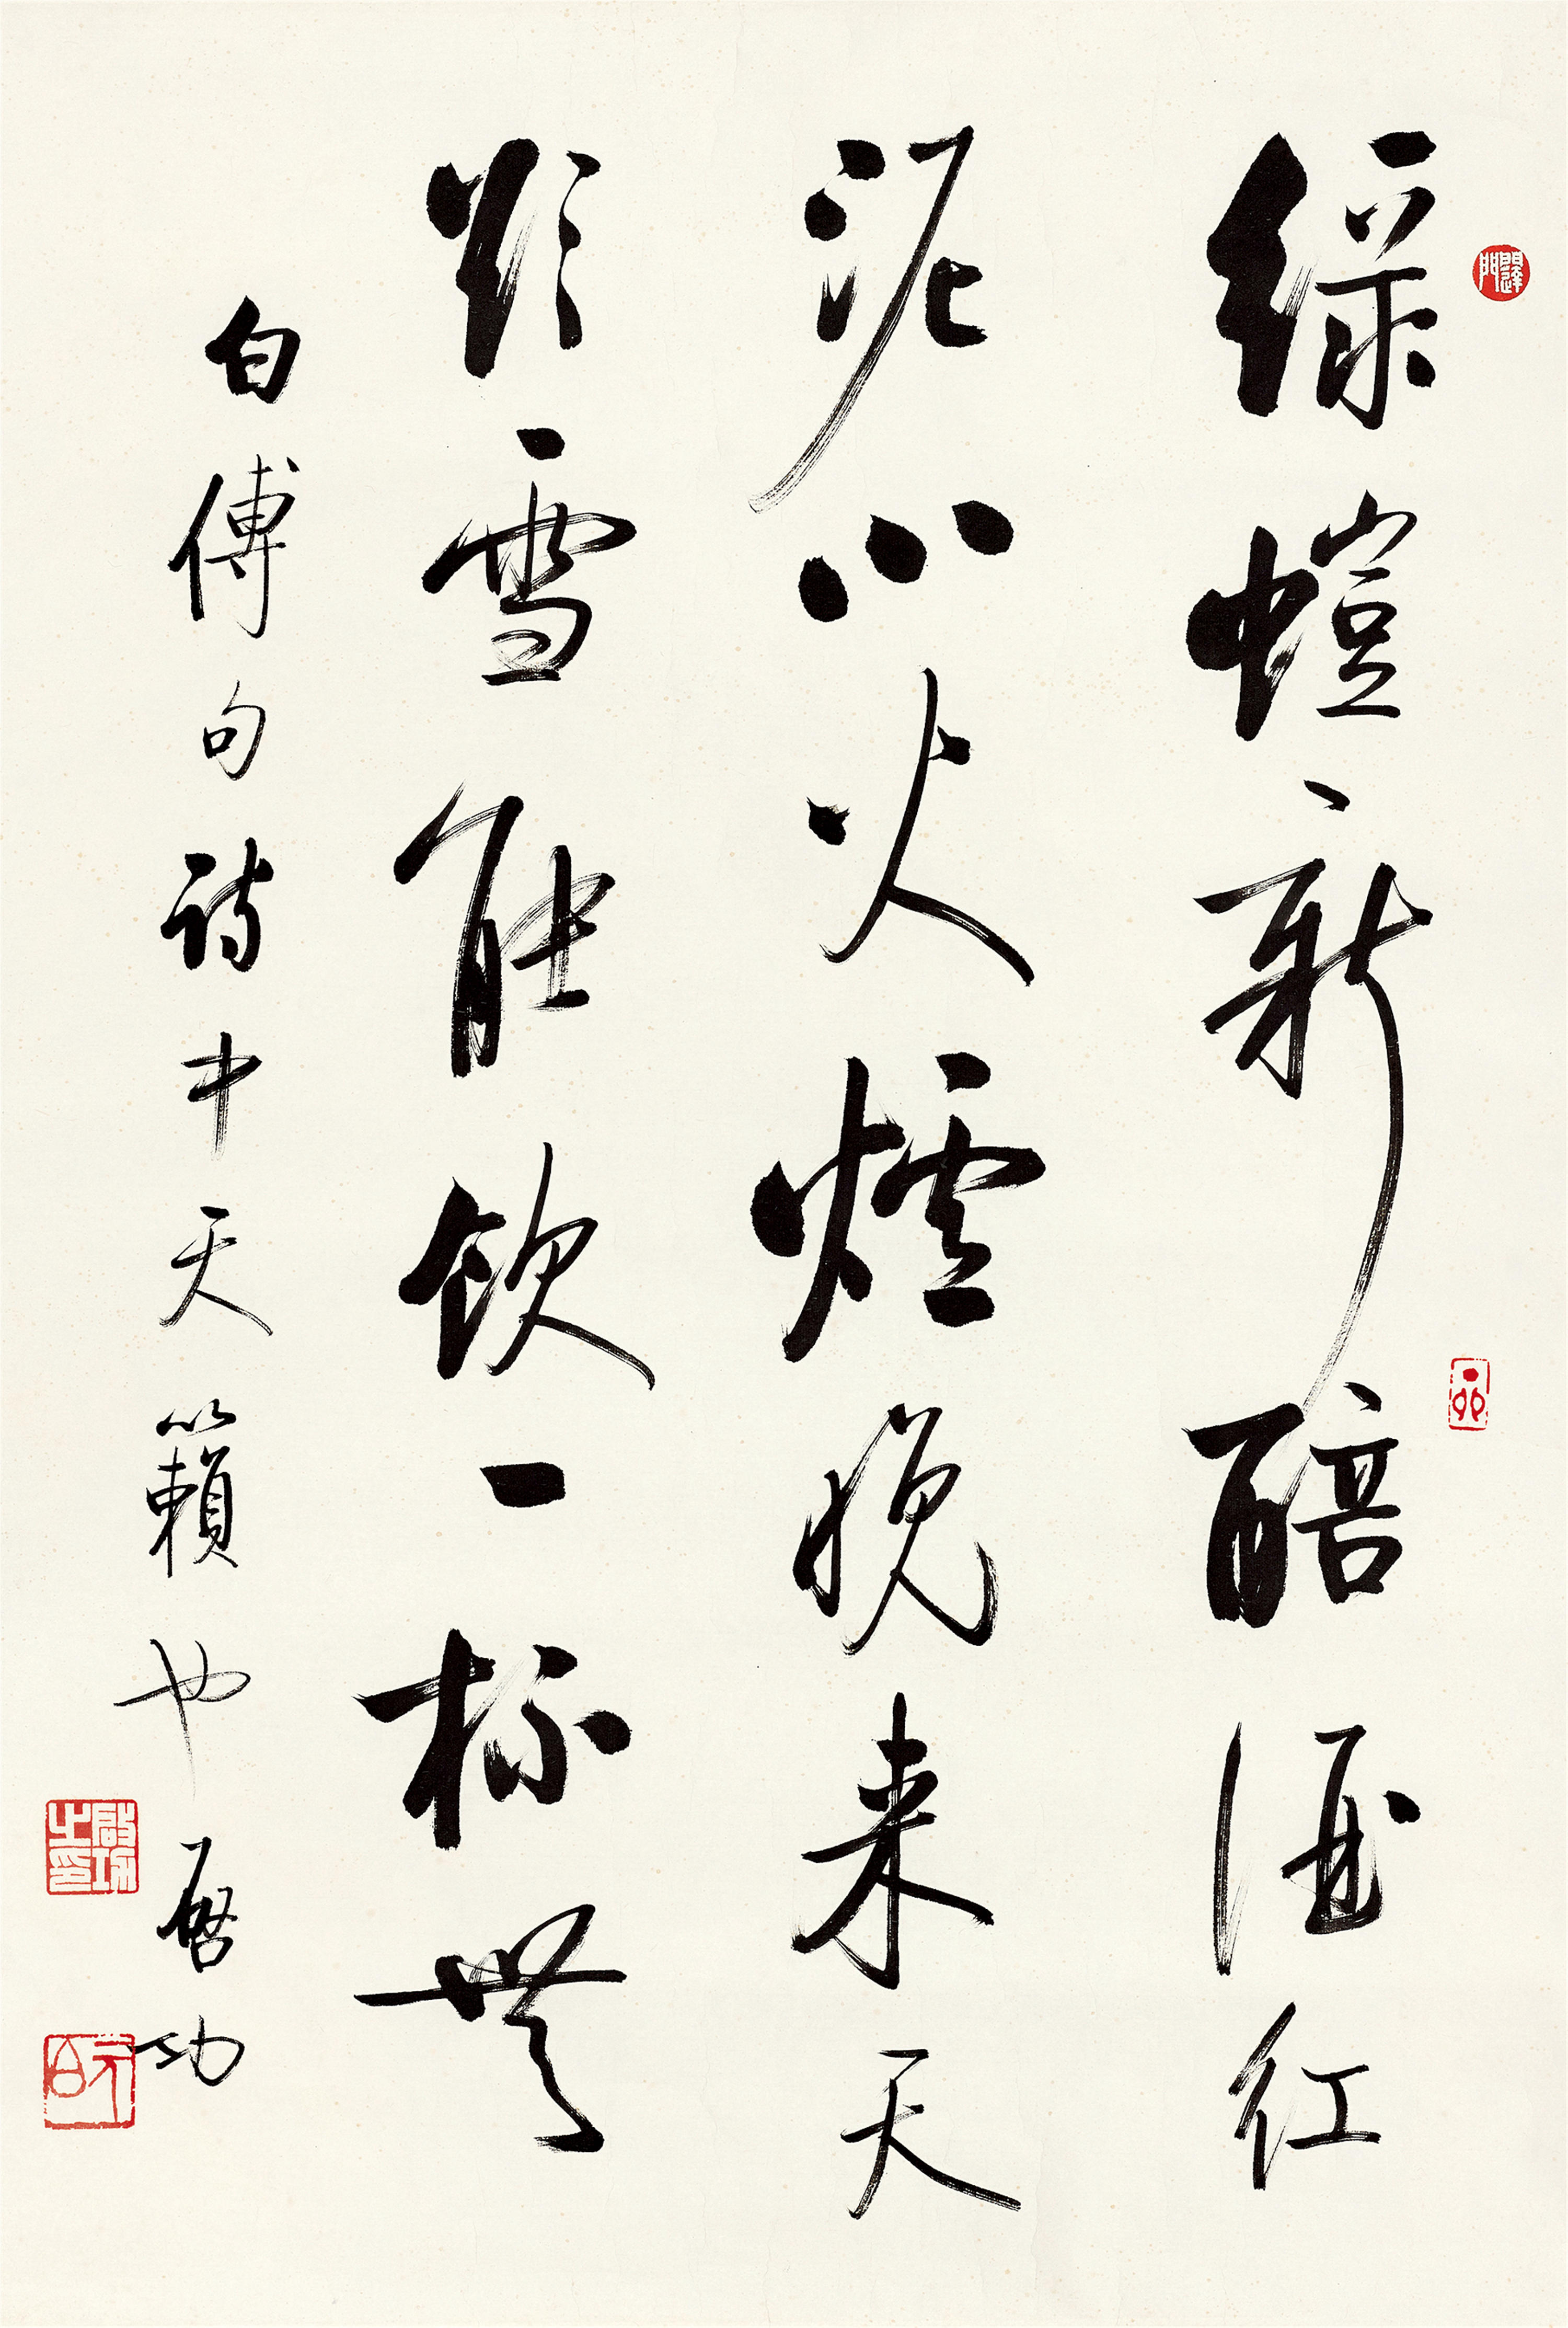 綠螘新醅酒紅
泥小火爐晚来天
欲雪能飲一杯無
白傅句詩中天籟也 啓功
啟功之印
元白